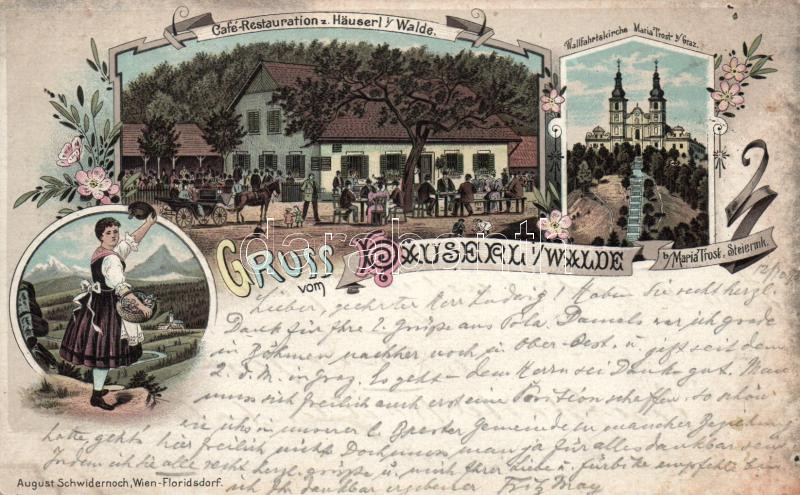 Café-Restauration z. Häuserl i/ Walde.
Wallfahrtskirche Maria Trost b/ Graz.
Gruss vom Häuserl i/ Walde
b/ Maria Trost, Steierm.
darabanth
Lieber, geehrter Herr Ludwig! Haben Sie recht herzl.
Dank für Ihre l. Grüße aus Pola. Damals war ich grade
in Böhmen nachher noch in Ober-Öst. u. jetzt seit dem
2. d. M. in Graz. Es geht dem Herrn sei Dank gut. Man
muss sich freilich auch erst eine Position schaffen. So schön
wie ich's in unserer l. Gemeinde in mancher Beziehung
hatte, geht's hier freilich nicht. Doch muss man ja für alles dankbar sein
Indem ich Sie alle recht herzl. grüße u. mich Ihrer Liebe u. Fürbitte empfehle bin
ich Ihr dankbar ergebener Fritz May
August Schwidernoch, Wien-Floridsdorf.